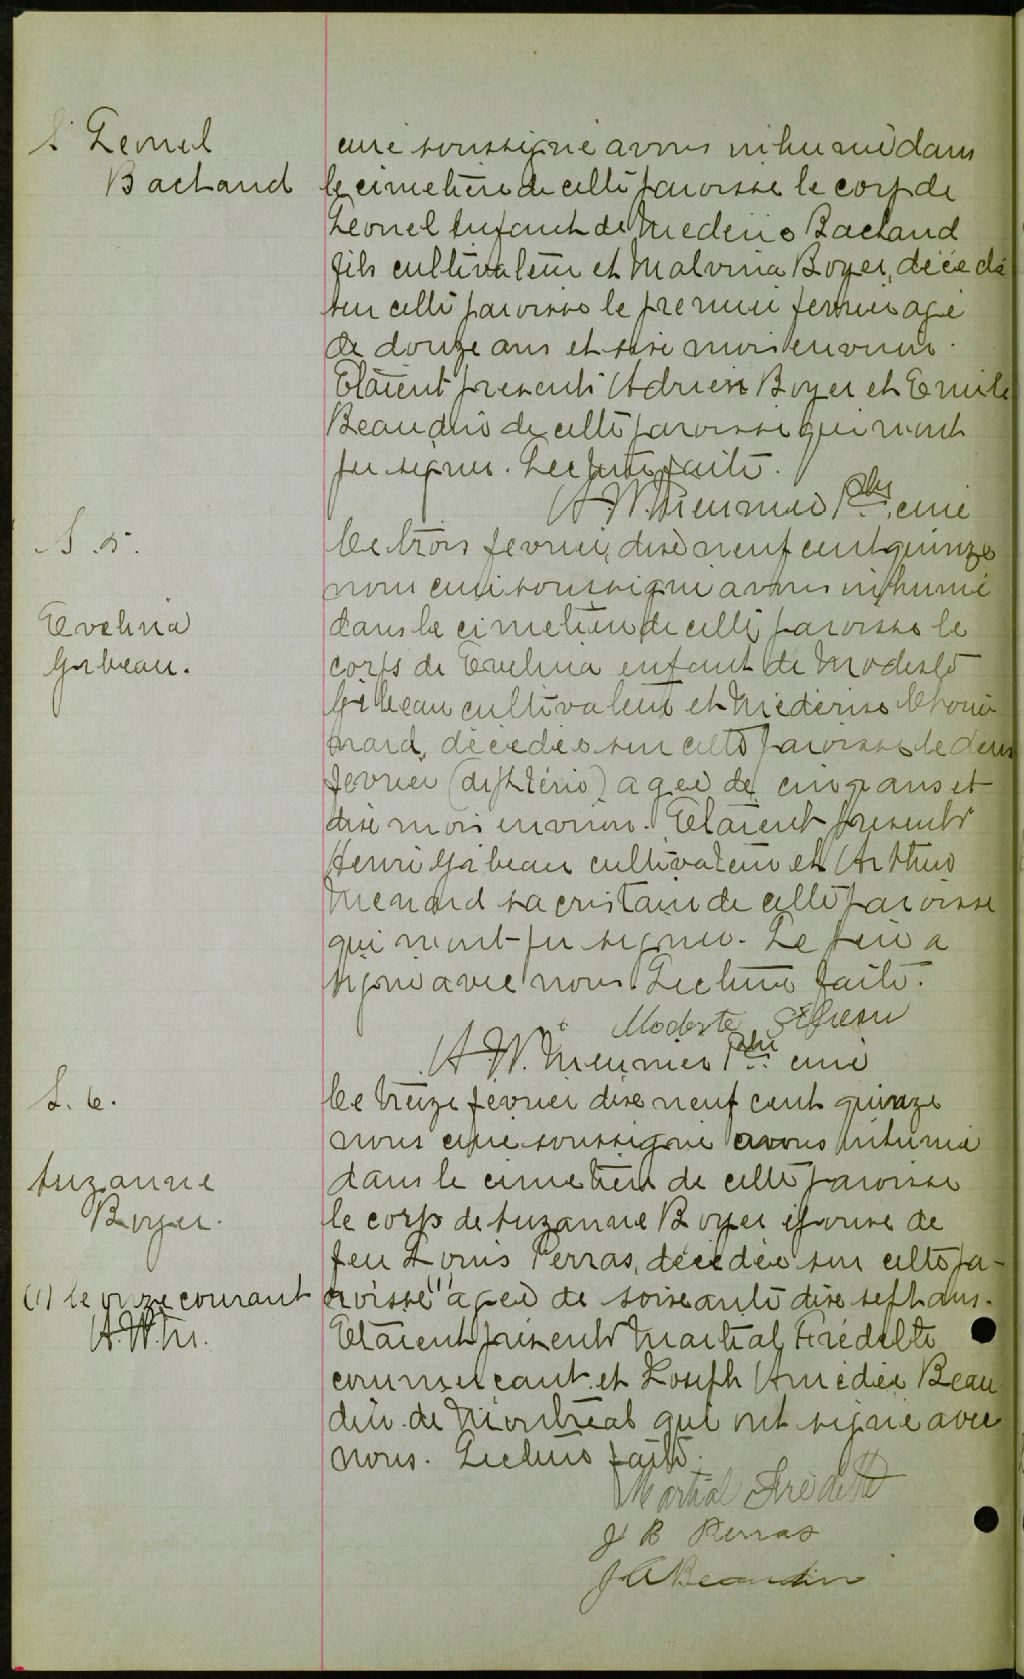 S Leonel
Bachand
curé soussigné avons inhumé dans
le cimetière de cette paroisse le corps de
Leonel enfant de Mederic Bachand
fils cultivateur et Malvina Boyer, décédé
sur cette paroisse le premier fevrier agé
de douze ans et six mois environ.
Etaient presents Adrien Boyer et Emile
Beaudin de cette paroisse qui n'ont
pu signer. Lecture faite.
A. W. Meunier Ptre curé
S. 5.
Evelina
Gibeau.
Le trois fevrier, dix neuf cent quinze
nous curé soussigné avons inhumé
dans le cimetière de cette paroisse le
corps de Evelina enfant de Modeste
Gibeau cultivateur et Médérise Choui
nard, décédée sur cette paroisse le deux
fevrier (diphtérie) agée de cinq ans et
dix mois environ. Etaient présents
Henri Gibeau cultivateur et Arthur
Menard sacristain de cette paroisse
qui n'ont pu signer. Le père a
signé avec nous Lecture faite.
Modeste Gibeau
A. W. Meunier Ptre curé
S. 6.
Suzanne
Boyer.
Le treize février dix neuf cent quinze
nous curé soussigné avons inhumé
dans le cimetière de cette paroisse
le corps de Suzanne Boyer épouse de
feu Louis Perras, décédée sur cette pa-
roisse (1) agée de soixante dix sept ans.
(1) le onze courant
A. W. M.
Etaient présents Martial Frédette
commercant et Joseph Amédée Beau
din de Montréal qui ont signé avec
nous. Lecture faite.
Martial Frédette
J B Perras
J A Beaudin